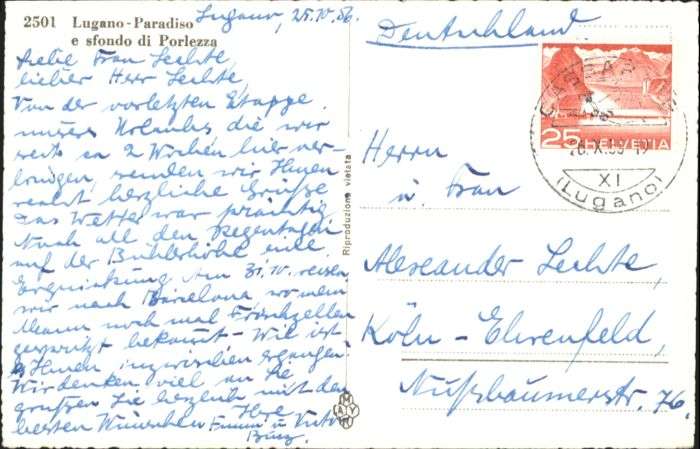 2501 Lugano-Paradiso
e sfondo di Porlezza
Lugano, 25.10.56.
Liebe Frau Lechte,
lieber Herr Lechte,
Von der vorletzten Etappe
unseres Urlaubs die wir
seit ca 2 Wochen hier ver-
bringen, senden wir Ihnen
recht herzliche Grüße
Das Wetter war prächtig.
Nach all den Regentagen
auf der Bühlerhöhe eine
Erquickung. Am 31.10. reisen
wir nach Barcelona wo mein
Mann noch mal Frischzellen
gespritzt bekommt - Wie ist
es Ihnen inzwischen ergangen.
Wir denken viel an Sie
grüßen Sie herzlich mit den
besten Wünschen Ihre
Emmi u Victor
Riproduzione vietata
MAYR
Deutschland
25 HELVETIA
XI
(Lugano)
Herrn
u. Frau
Alexander Lechte,
Köln-Ehrenfeld,
Nußbaumerstr. 76.